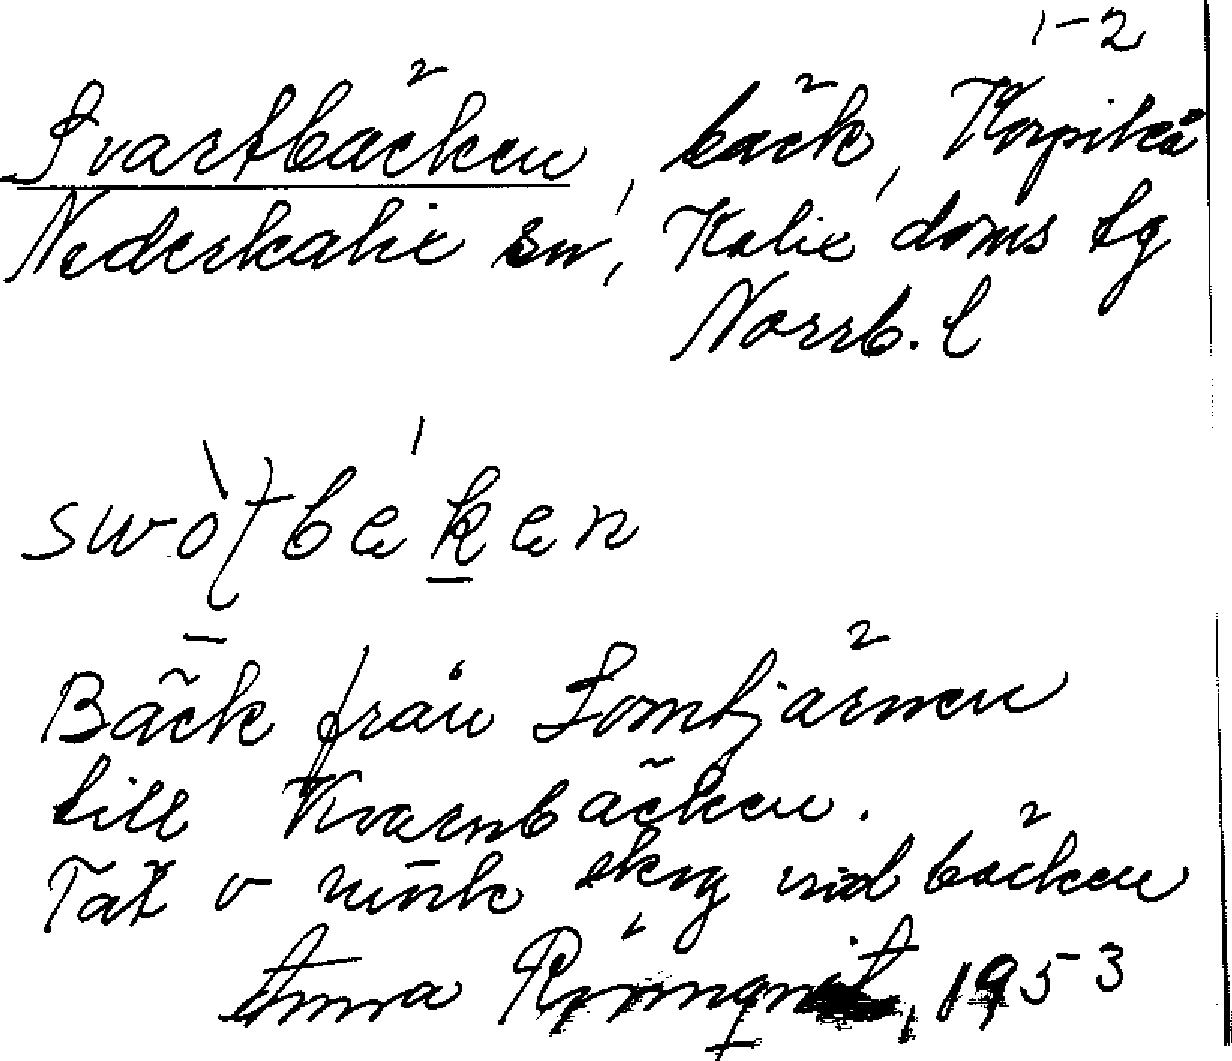 1-2
Svartbäcken, bäck, Korpikå
Nederkalix sn, Kalix doms tg
Norrb. l
swòtbeken
Bäck från Lomtjärnen
till Kvarnbäcken.
Tät o mörk skog vid bäcken
Anna 1953